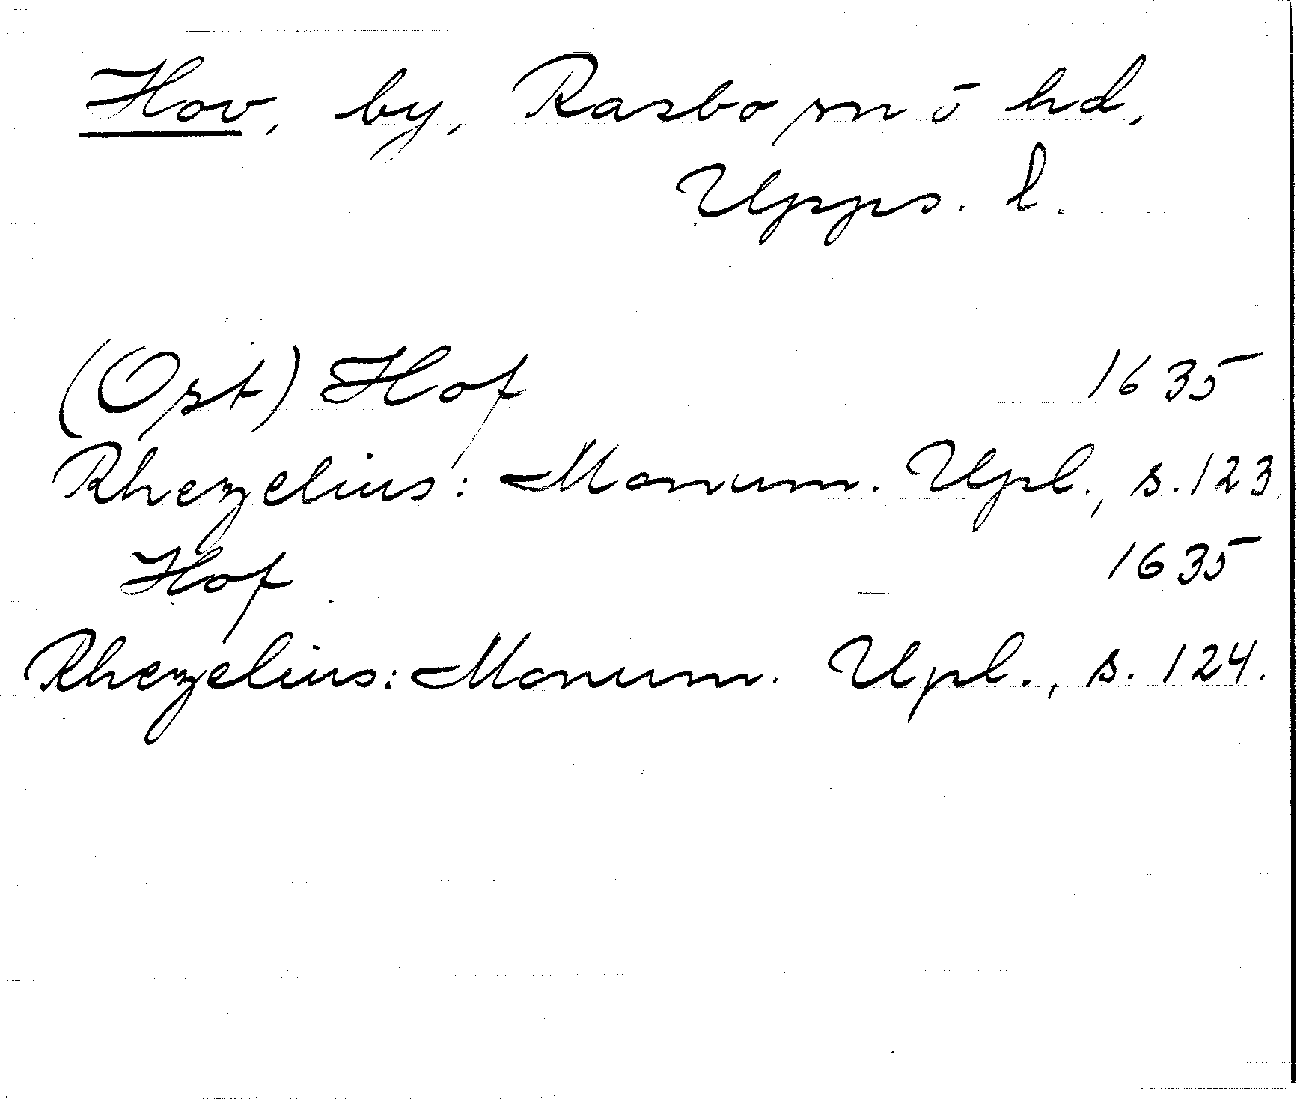 Hov, by, Rasbo sn o hd,
Upps. l.
(Öst) Hof 1635
Rhezelius: Monum. Upl., s. 123
Hof 1635
Rhezelius: Monum. Upl., s. 124.